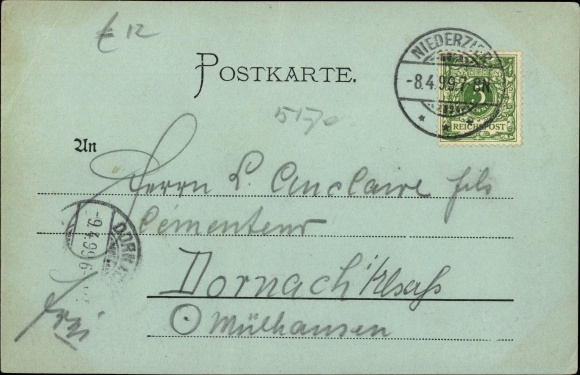 € 12
POSTKARTE.
NIEDERZ
-8.4.99.7-8N
5
REICHSPOST
5170
An
Herrn L. Anclaire fils
Cémenteur
Dornach i/Elsaß
Mülhausen
DORNA
-9.4.99
frei